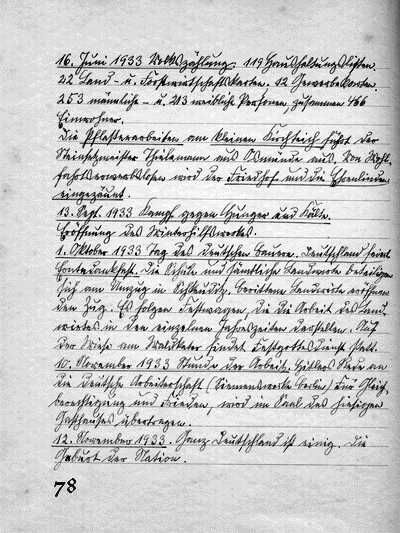 16. Juni 1933 Volkszählung. 119 Haushaltungslisten.
22 Land- u. Forstwirtschaftskarten. 12 Gewerbekarten.
253 männliche - u. 213 weibliche Personen, zusammen 466
Einwohner.
Die Pflasterarbeiten am kleinen Kirchteich führt der
Steinsetzmeister Thielemann aus Osmünde aus. Von Wohl-
fahrtserwerbslosen wird der Friedhof und die Ehrenlinden
eingezäunt.
13. Sept. 1933 Kampf gegen Hunger und Kälte.
Eröffnung des Winterhilfswerkes.
1. Oktober 1933 Tag des Deutschen Bauern. Deutschland feiert
Erntedankfest. Die Schule und sämtliche Landwirte beteiligen
sich am Umzug in Schkeuditz. berittene Landwirte eröffnen
den Zug. Es folgen Festwagen, die die Arbeit des Land-
wirtes in den einzelnen Jahreszeiten darstellen. Auf
der Wiese am Waldkater findet Festgottesdienst statt.
10. November 1933 Stunde der Arbeit. Hitlers Rede an
die Deutsche Arbeiterschaft (Siemenswerke Berlin) Für Gleich-
berechtigung und Frieden, wird im Saal des hiesigen
Gasthauses übertragen.
12. November 1933. Ganz Deutschland ist einig. Die
Geburt der Nation.
78